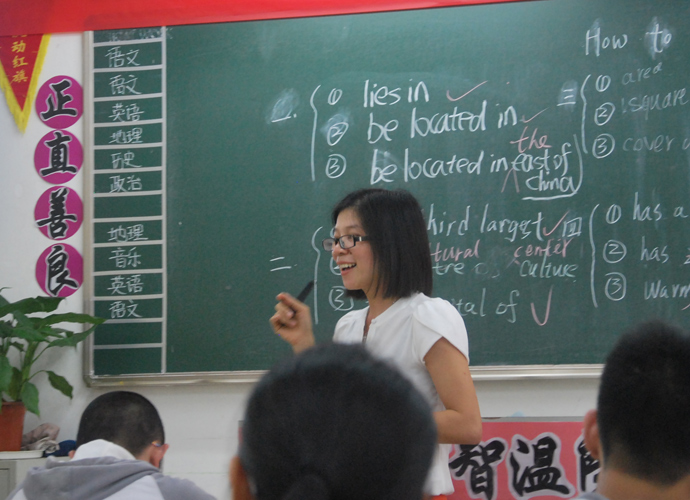 动红旗
正直善良
语文
语文
英语
地理
历史
政治
地理
音乐
英语
语文
一.
① lies in ✓
② be located in ✓
the
③ be located in east of
China
二
hird largest ✓
tural center
tre of culture
③ ital of ✓
How to
三
① area
② square
③ cover
四
① has a
② has
③ warm
智温